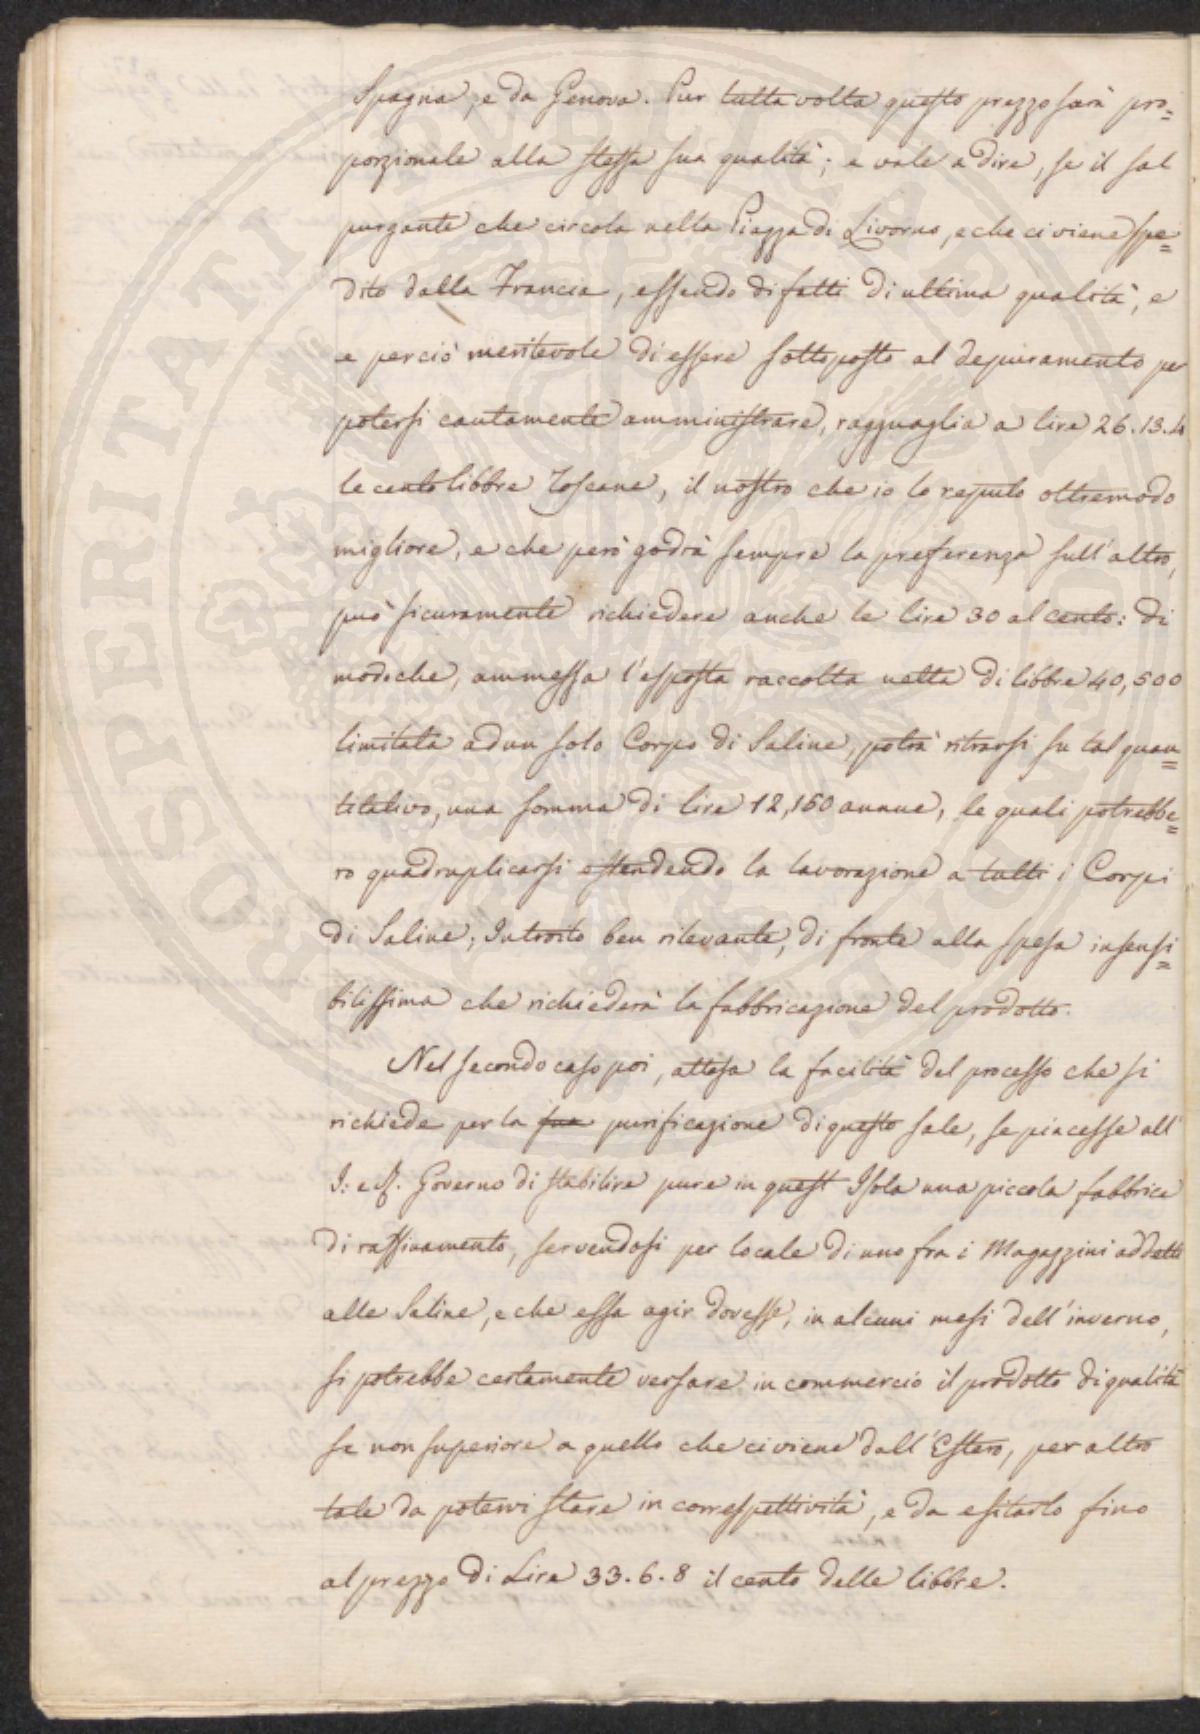 Spagna, e da Genova. Pur tutta volta questo prezzo sarà pro=
porzionale alla stessa sua qualità; e vale a dire, se il sal
purgante che circola nella Piazza di Livorno, e che ci viene spe=
dito dalla Francia, essendo di fatti di ultima qualità, e
e perciò meritevole di essere sottoposto al depuramento per
potersi cautamente amministrare, ragguaglia a lire 26.13.4
le cento libbre Toscane, il nostro che io lo reputo oltremodo
migliore, e che però godrà sempre la preferenza sull'altro,
può sicuramente richiedere anche le lire 30 al cento: di
modoche, ammessa l'esposta raccolta netta di libbre 40,500
limitata ad un solo Corpo di Saline, potrà ritrarsi su tal quan=
titativo, una somma di lire 12,150 annue, le quali potrebbe=
ro quadruplicarsi estendendo la lavorazione a tutti i Corpi
di Saline; Introito ben rilevante, di fronte alla spesa insensi=
bilissima che richiederà la fabbricazione del prodotto.
Nel secondo caso poi, attesa la facilità del processo che si
richiede per la sua purificazione di questo sale, se piacesse all'
I: e R. Governo di stabilire pure in quest Isola una piccola fabbrica
di raffinamento, servendosi per locale di uno fra i Magazzini addetti
alle Saline, e che essa agir dovesse, in alcuni mesi dell'inverno,
si potrebbe certamente versare in commercio il prodotto di qualità
se non superiore a quello che ci viene dall'Estero, per altro
tale da potervi stare in correspettività, e da esitarlo fino
al prezzo di Lire 33.6.8 il cento delle libbre.
PROSPERITATI PUBLICAE AUGENDAE